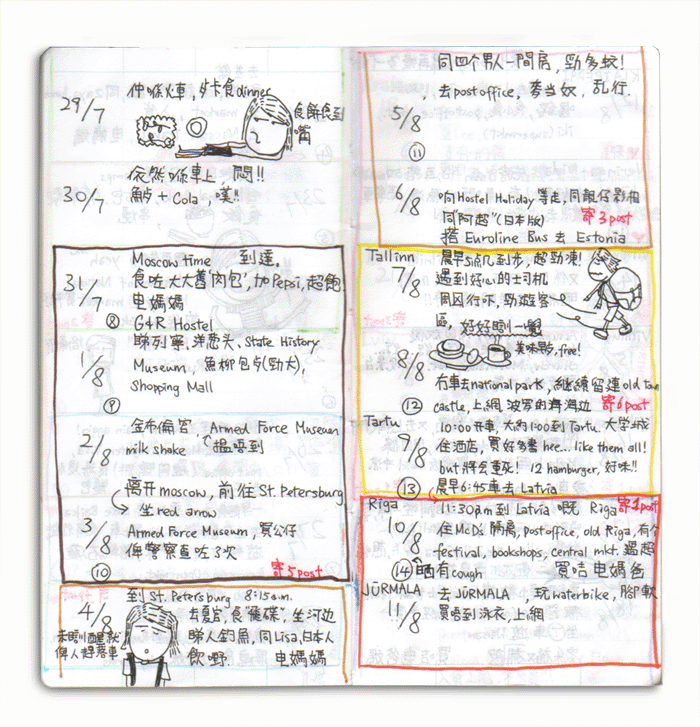 29/7
仲喺火車, 外卡食dinner
食餅食到嘴
30/7
依然喺車上, 悶!!
魚 + Cola, 嘆!!
31/7
Moscow time 到達,
食咗大大舊'肉包', 加Pepsi, 超飽
电媽媽
⑧ G&R Hostel
1/8
睇列寧, 洋葱头, State History
Museum, 魚柳包(勁大),
Shopping Mall
⑨
2/8
金布倫宮 Armed Force Museum
milk shake 搵唔到
离开moscow, 前往St. Petersburg
坐red arrow
3/8
Armed Force Museum, 買公仔
俾警察查咗3次
⑩ 寄5post
4/8
到St. Petersburg 8:15a.m.
去夏宮, 食"飛碟", 坐河边
睇人釣魚, 同Lisa, 日本人
飲嘢. 电媽媽
未瞓醒就
俾人趕落車
同四个男人一間房, 勁多蚊!
5/8
去post office, 麥当奴, 乱行,
⑪
6/8
响Hostel Holiday 等走, 同靚仔影相
同"阿超"(日本版) 寄3post
搭Euroline Bus 去Estonia
Tallinn
7/8
晨早5点几到步, 超勁凍!
遇到好心的士司机
周囚行下, 勁遊客
區, 好好瞓一覺
美味早点, free!
8/8
冇車去national park, 継續留連old town
⑫ castle, 上網, 波罗的海海边 寄6post
Tartu
9/8
10:00开車, 大約1:00到Tartu. 大学城
住酒店, 買好多書 hee... like them all!
but 將会重死! 12 hamburger, 好味!!
⑬ 晨早6:45車去Latvia
Riga
10/8
11:30am到Latvia 嘅 Riga 寄4post
住McDs 隔离, post office, old Riga, 有个
festival, bookshops, central mkt. 過超
⑭ 晒 有cough 買咭 电媽爸
JŪRMALA
11/8
去JŪRMALA 玩waterbike, 腳軟
買唔到泳衣, 上網